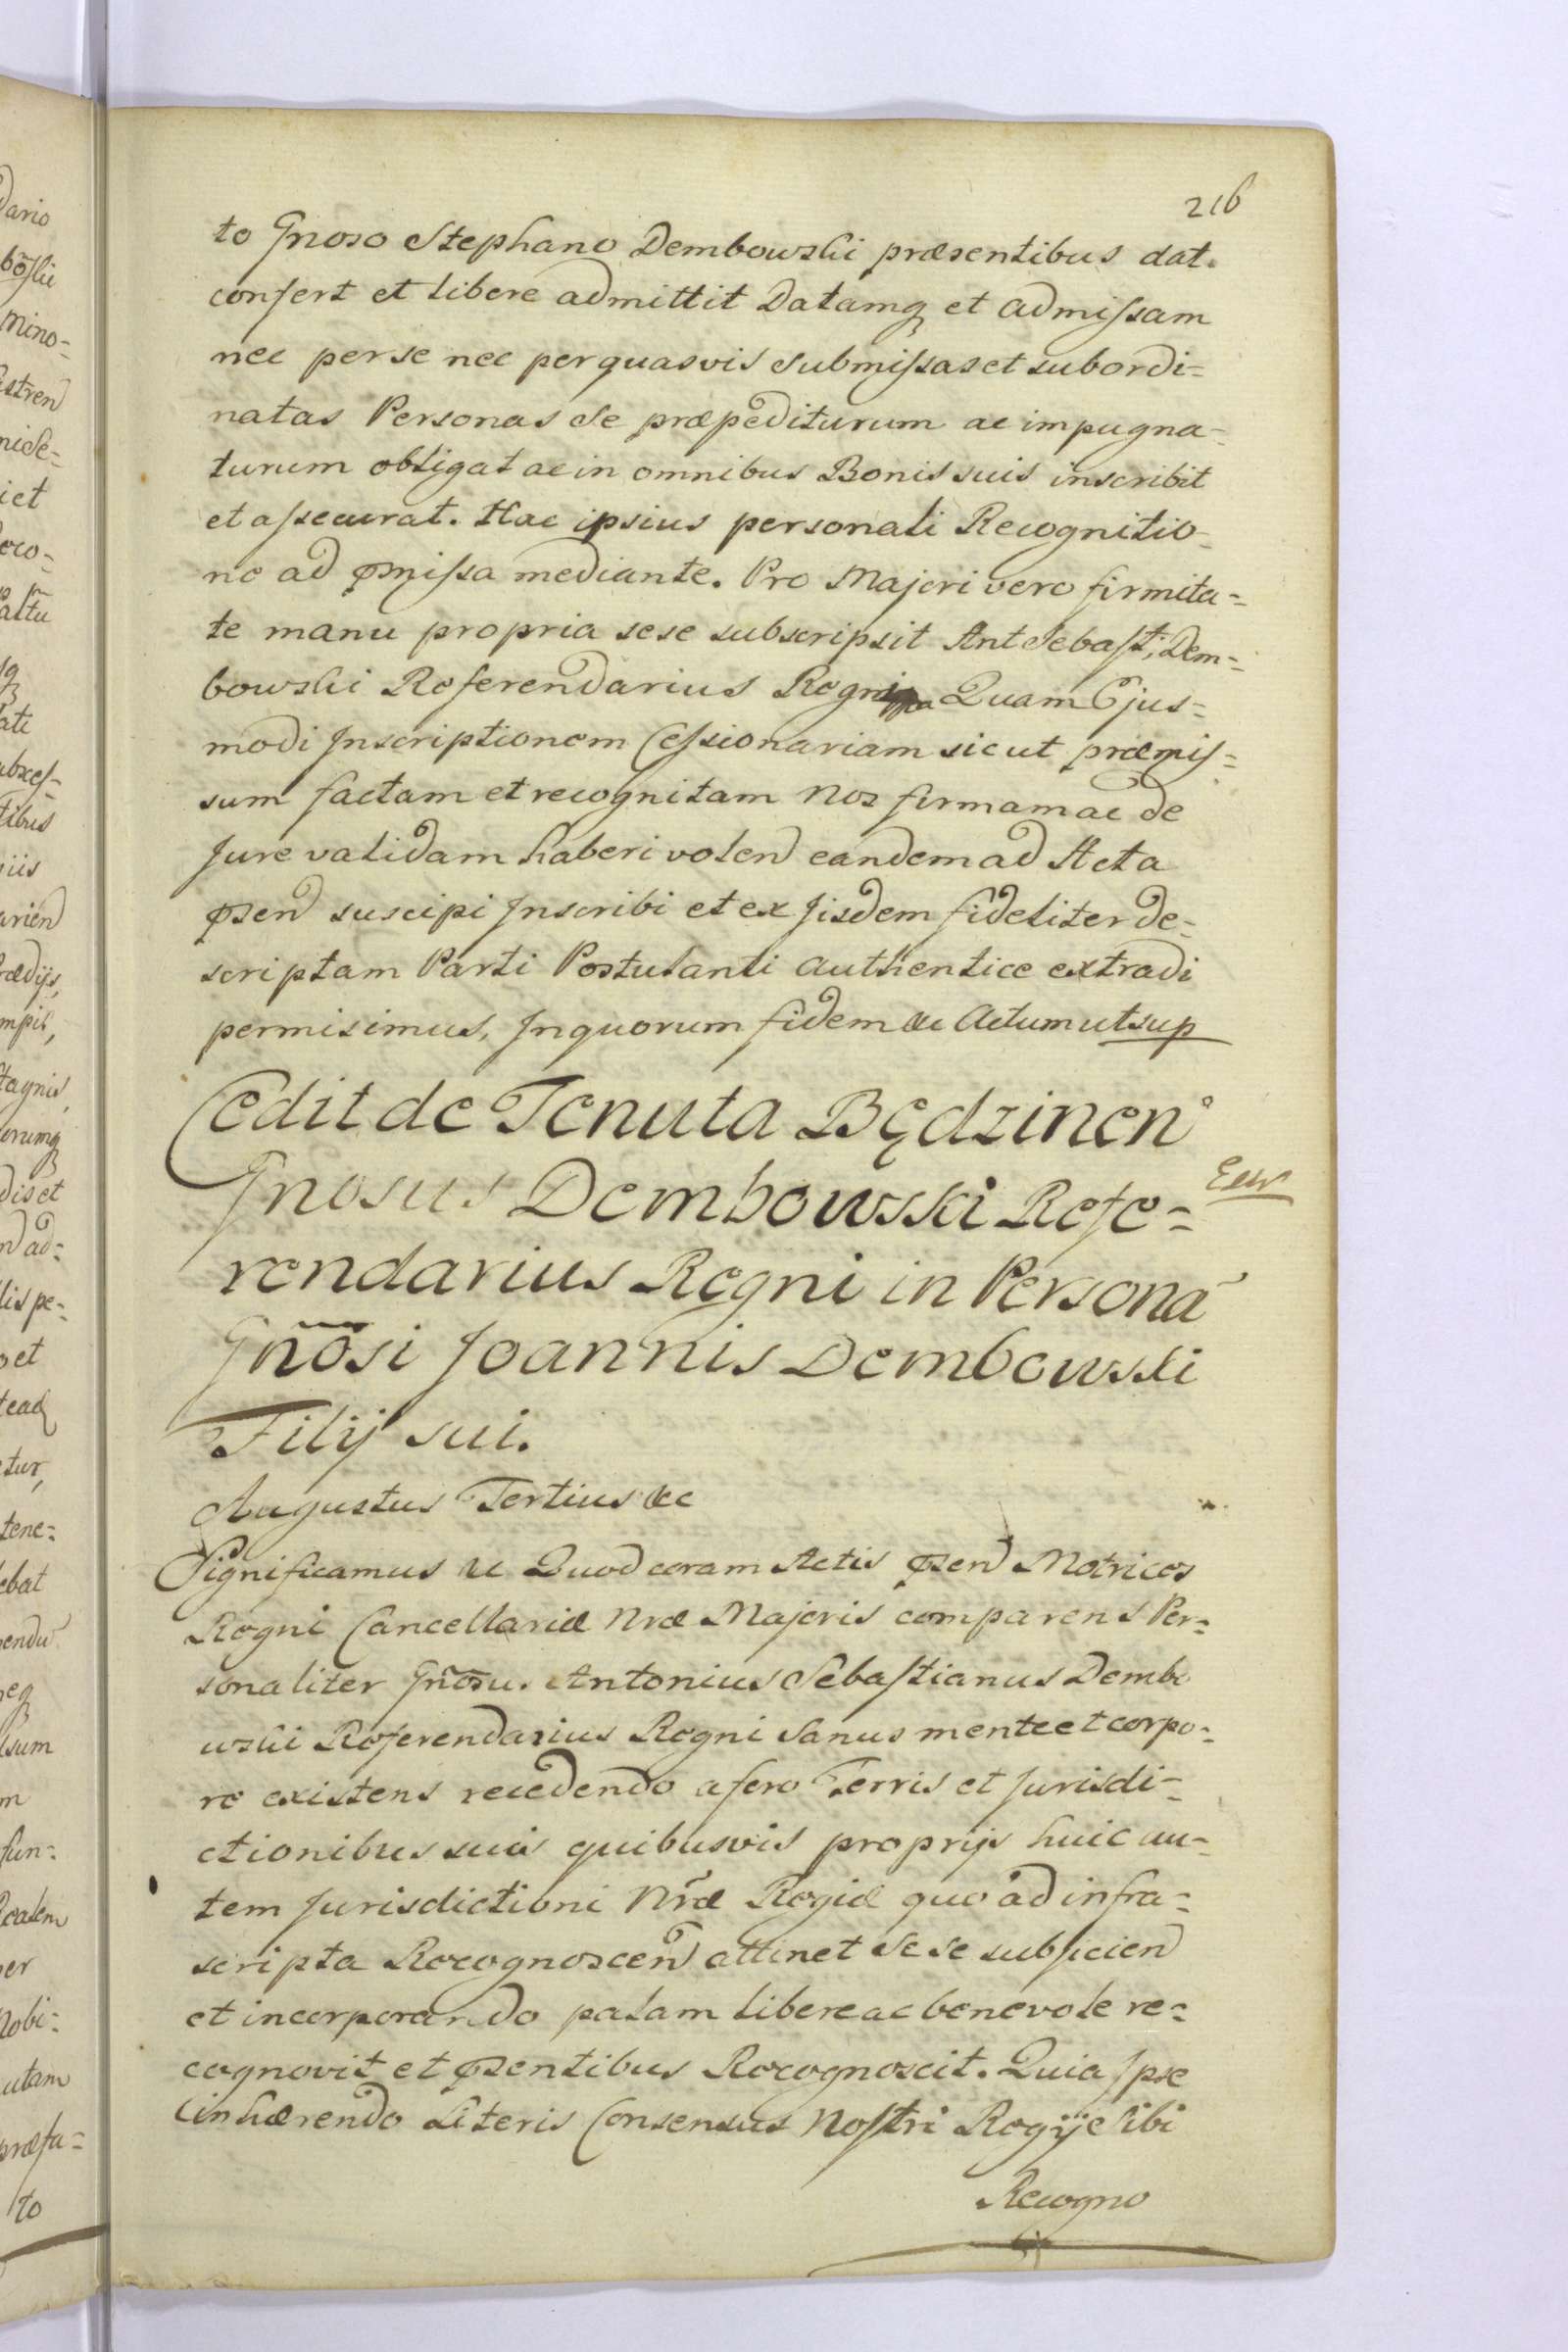 216
to Gnoso Stephano Dembowski præsentibus dat.
confert et libere admittit Datamq et admissam
nec per se nec per quasvis submissas et subordi=
natas Personas se præpediturum ac impugna=
turum obligat ac in omnibus Bonis suis inscribit
et assecurat. Hac ipsius personali Recognitio=
ne ad pmissa mediante. Pro Majori vero firmita=
te manu propria sese subscripsit Ant Sebast: Dem=
bowski Referendarius Regni Quam Ejus=
modi Inscriptionem Cessionariam sicut præmis=
sum factam et recognitam Nos firmam ac de
Jure validam haberi volend eandem ad Acta
psend suscipi Inscribi et ex Jisdem fideliter de=
scriptam Parti Postulanti authentice extradi
permisimus, In quorum fidem &c Actum ut sup
Cedit de Tenuta Będzinen
Gnosus Dembowski Refe=
rendarius Regni in Persona
Gnosi Joannis Dembowski
Filij sui.
Augustus Tertius &c
Significamus &c Quod coram Actis psend Metrices
Regni Cancellariæ Nræ Majoris comparens Per=
sonaliter Gnosu. Antonius Sebastianus Dembo
wski Referendarius Regni Sanus mente et corpo=
re existens recedendo a foro Terris et Jurisdi=
ctionibus suis quibusvis proprijs huic au=
tem Jurisdictioni Nræ Regiæ quo ad infra=
scripta Recognoscen attinet sese subjiciend
et incorporando palam libere ac benevole re=
cognovit et psentibus Recognoscit. Quia Ipse
inhærendo Literis Consensus Nostri Regij Sibi
Recogno